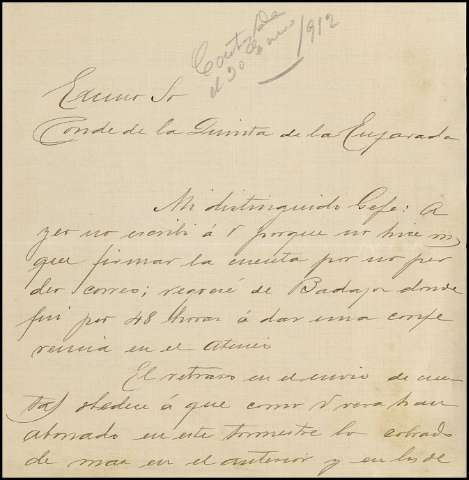 Contestada
el 30 Enero/912
Excmo Sr
Conde de la Quinta de la Enjarada
Mi distinguido Gefe: A
yer no escribí á V porque no hice m
que firmar la cuenta por no per
der correo; regresé de Badajoz donde
fui por 48 horas á dar una confe
rencia en el Ateneo
El retraso en el envio de cuen
tas obedece á que como V vera han
abonado en este trimestre lo cobrado
de mas en el anterior y en los de